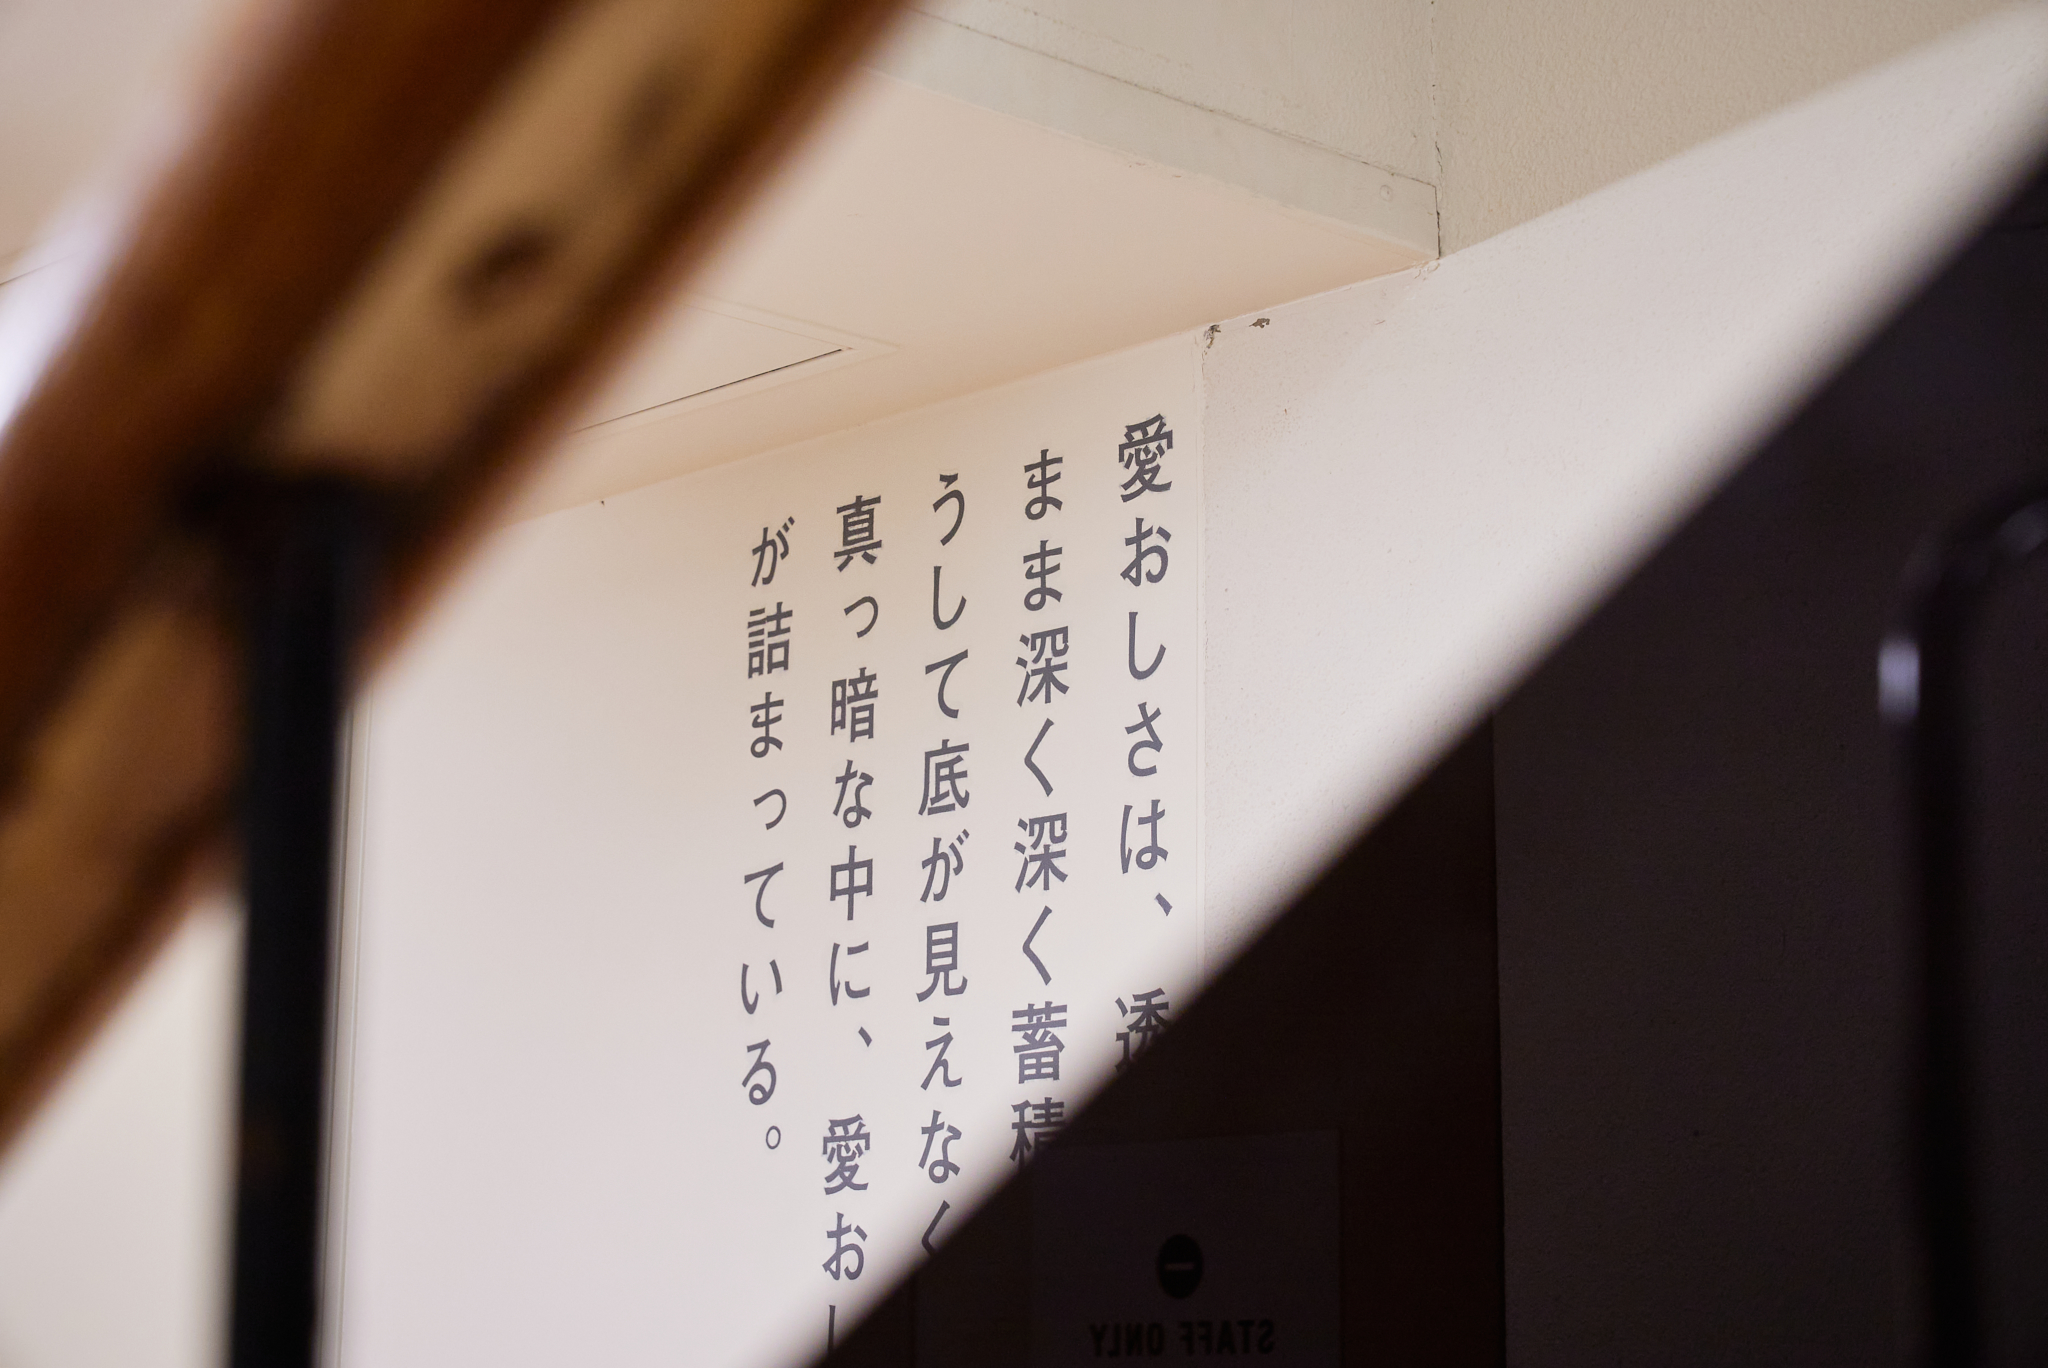 愛おしさは、透
まま深く深く蓄積
うして底が見えなく
真っ暗な中に、愛おし
が詰まっている。
STAFF ONLY